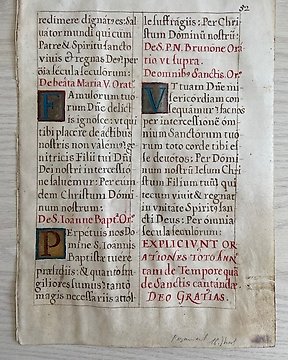 52
redimere dignat'es: Sal
uator mundi qui cum
Patre & Spiritu sancto
viuis & regnas De' per
o'ia sécula seculorum:
De beata Maria V. Orat.o
FAmulorum tuo
rum Dñe delic
tis ignosce: vt qui
tibi placere de actibus
nostris non valem' ge
nitricis Filii tui Dñi
Dei nostri intercessio
ne saluemur: Per eum
dem Christum Dómi
num nostrum:
De S. Ioanne Bapt.a Or.o
PErpetuis nos Do
mine S. Ioannis
Baptistæ tuere
præsidiis: & quanto fra
giliores sumus: tantó
magis necessariis attol
le suffragiis: Per Chri
stum Dóminũ nostrũ:
De S. P. N. Brunone Ora
tio vt supra.
De omnibus Sanctis. Or.o
VT tuam Dñe mi
sericordiam con
sequamur: fac nos
per intercessionē ōm
nium Sanctorum tuo
rum toto corde tibi es
se deuotos: Per Dómi
num nostrũ Iesum Chri
stum Filium tuũ qui
tecum viuit & regnat
in vnitate Spirit' san
cti Deus: Per omnia
secula seculorum:
EXPLICIVNT OR
ATIONES TOTO ANN
tam de Tempore quā
de Sanctis cantandæ
DEO GRATIAS.